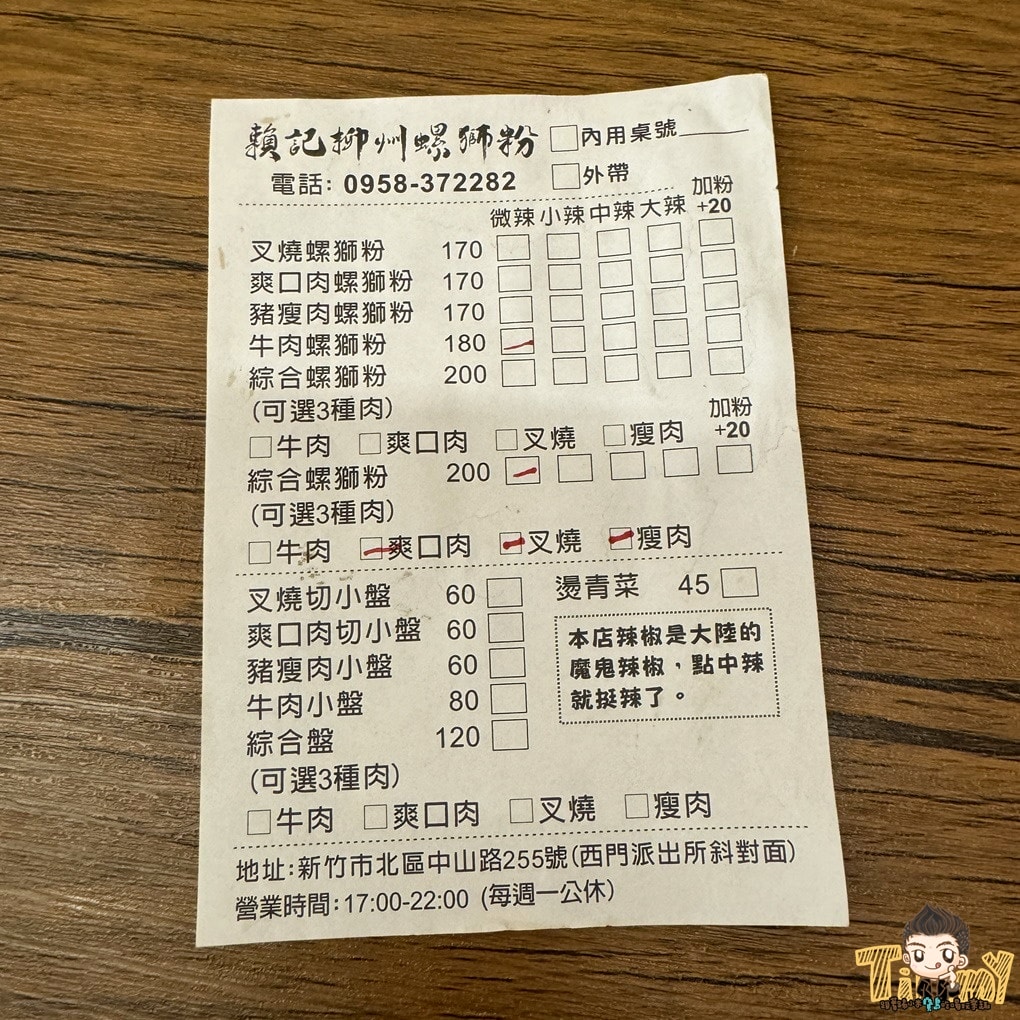 賴記柳州螺獅粉 □內用桌號______
電話: 0958-372282 □外帶
微辣 小辣 中辣 大辣 加粉+20
叉燒螺獅粉 170 □ □ □ □ □
爽口肉螺獅粉 170 □ □ □ □ □
豬瘦肉螺獅粉 170 □ □ □ □ □
牛肉螺獅粉 180 □ □ □ □ □
綜合螺獅粉 200 □ □ □ □ □
(可選3種肉) 加粉
□牛肉 □爽口肉 □叉燒 □瘦肉 +20
綜合螺獅粉 200 □ □ □ □ □
(可選3種肉)
□牛肉 □爽口肉 □叉燒 □瘦肉
叉燒切小盤 60 □ 燙青菜 45 □
爽口肉切小盤 60 □
豬瘦肉小盤 60 □
牛肉小盤 80 □
綜合盤 120 □
(可選3種肉)
本店辣椒是大陸的
魔鬼辣椒，點中辣
就挺辣了。
□牛肉 □爽口肉 □叉燒 □瘦肉
地址:新竹市北區中山路255號(西門派出所斜對面)
營業時間:17:00-22:00 (每週一公休)